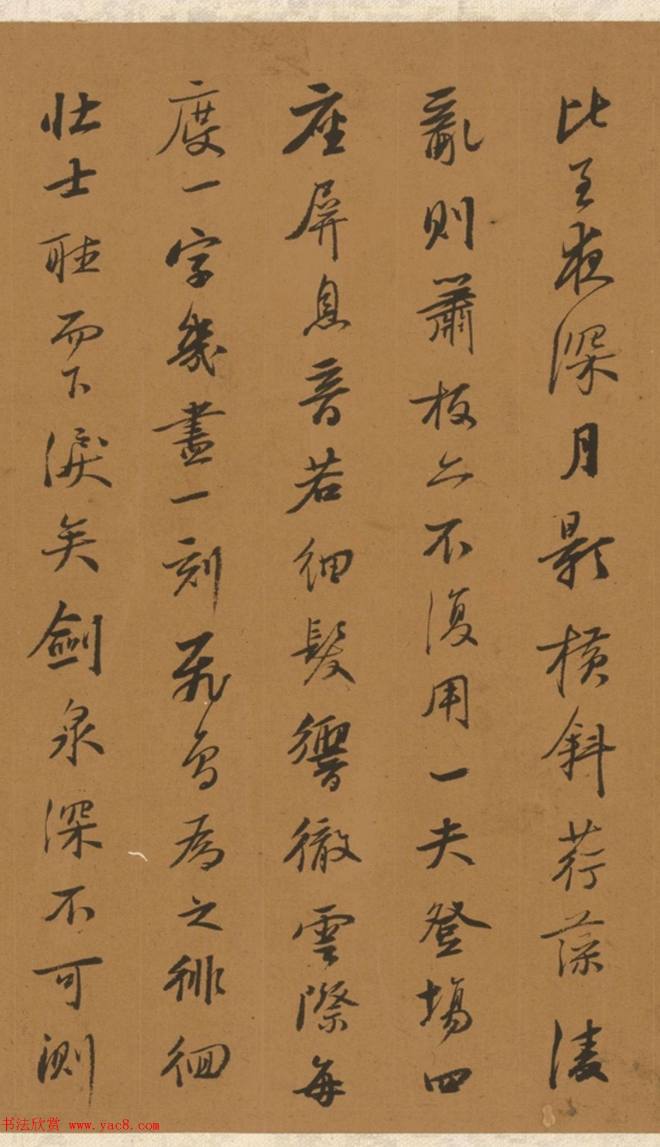 比至夜深月影橫斜荇藻凌
亂則簫板亦不復用一夫登場四
座屏息音若細髮響徹雲際每
度一字幾盡一刻飛鳥為之徘徊
壯士聽而下淚矣劍泉深不可測
书法欣赏 www.yac8.com